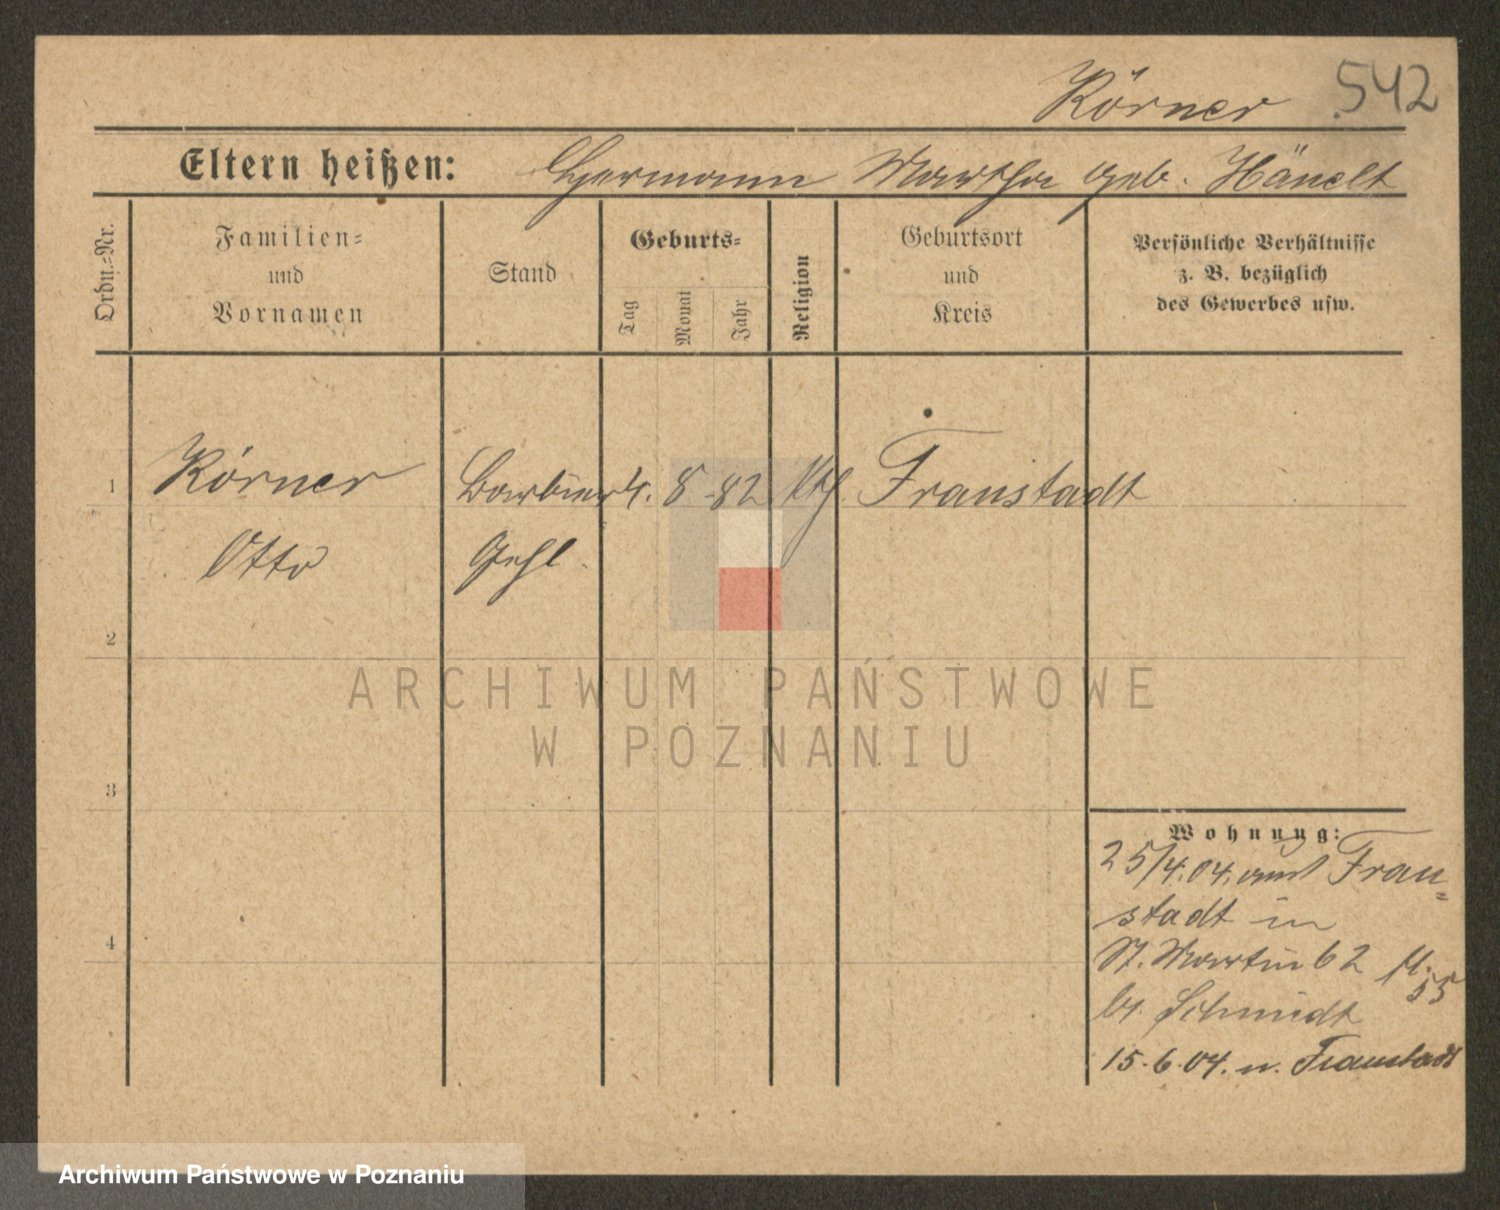 Körner 542
Eltern heißen: Hermann Martha geb. Hänelt
Ordn.-Nr.
Familien-
und
Vornamen
Stand
Geburts-
Tag
Monat
Jahr
Religion
Geburtsort
und
Kreis
Persönliche Verhältnisse
z. B. bezüglich
des Gewerbes usw.
1 Körner Barbier 4. 8 82 Kth. Fraustadt
Otto Gehl.
2
3
4
Wohnung:
25/4.04. aus Frau=
stadt in
St. Martin 62
55
br. Schmidt
15.6.04. n. Fraustadt
ARCHIWUM PAŃSTWOWE
W POZNANIU
Archiwum Państwowe w Poznaniu